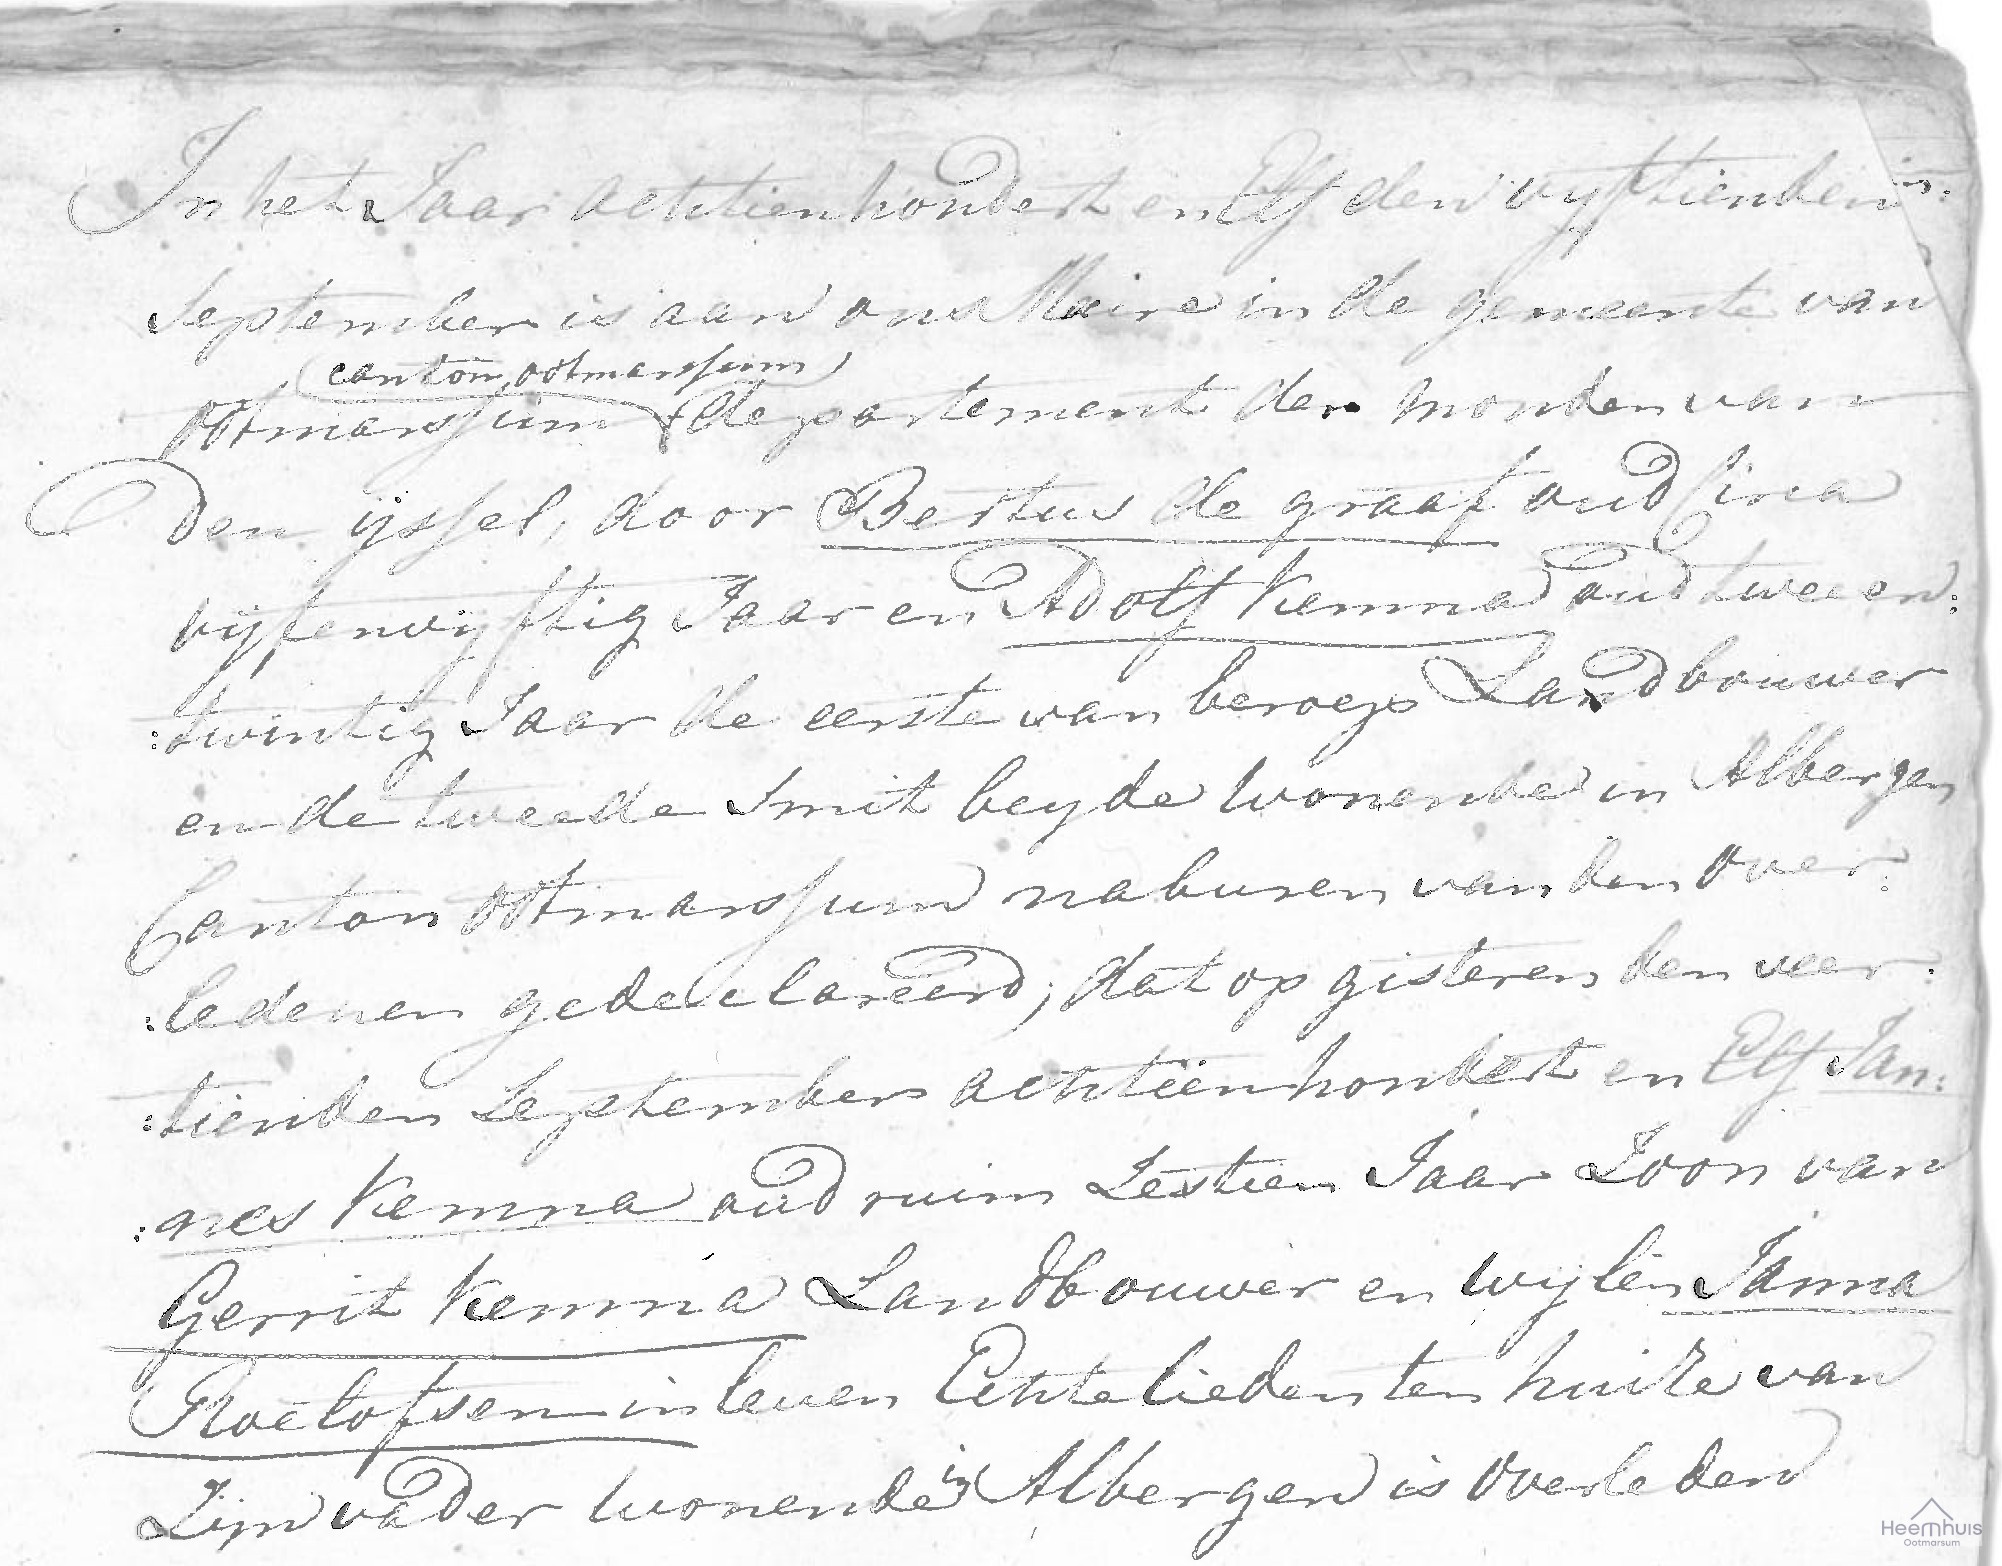 In het Jaar achtienhondert en Elf den vyftienden
September is aan ons Maire in de gemeente van
canton ootmarssum
Ootmarssum departement der monden van
Den ijssel, door Bertus de graaf oud circa
vijfenvyftig Jaar en Adolf Kemna oud twee en:
:twintig Jaar de eerste van beroep Landbouwer
en de tweede Smit beyde wonende in Albergen
Canton Ootmarssum naburen van den over:
:ledenen gedeclareerd; dat op gisteren den veer:
:tienden September achtiënhondert en Elf Jan:
:nes Kemna oud ruim Zestien Jaar Zoon van
Gerrit Kemna Landbouwer en wylen Janna
Roelofsen in leven Echtelieden ten huize van
Zijn vader wonende in Albergen is Overleden
Heemhuis
Ootmarsum